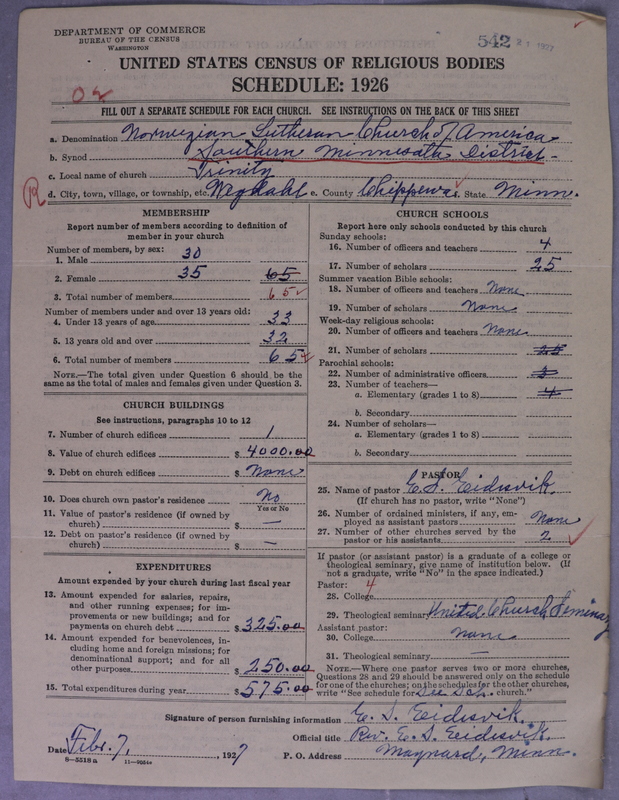 DEPARTMENT OF COMMERCE
BUREAU OF THE CENSUS
WASHINGTON
542 21 1927
UNITED STATES CENSUS OF RELIGIOUS BODIES
SCHEDULE: 1926
FILL OUT A SEPARATE SCHEDULE FOR EACH CHURCH. SEE INSTRUCTIONS ON THE BACK OF THIS SHEET
a. Denomination Norwegian Lutheran Church of America
b. Synod Southern Minnesota District
c. Local name of church Trinity
R
d. City, town, village, or township, etc. e. County Chippewa f. State Minn.
MEMBERSHIP
Report number of members according to definition of
member in your church
Number of members, by sex:
1. Male 30
2. Female 35 65
3. Total number of members 65
Number of members under and over 13 years old:
4. Under 13 years of age 33
5. 13 years old and over 32
6. Total number of members 65
NOTE.—The total given under Question 6 should be
same as the total of males and females given under Question 3.
CHURCH BUILDINGS
See instructions, paragraphs 10 to 12
7. Number of church edifices 1
8. Value of church edifices $ 4000.00
9. Debt on church edifices $ None
10. Does church own pastor's residence No
Yes or No
11. Value of pastor's residence (if owned by
church) $ —
12. Debt on pastor's residence (if owned by
church) $ —
EXPENDITURES
Amount expended by your church during last fiscal year
13. Amount expended for salaries, repairs,
and other running expenses; for im-
provements or new buildings; and for
payments on church debt $ 325.00
14. Amount expended for benevolences, in-
cluding home and foreign missions; for
denominational support; and for all
other purposes $ 250.00
15. Total expenditures during year $ 575.00
CHURCH SCHOOLS
Report here only schools conducted by this church
Sunday schools:
16. Number of officers and teachers 4
17. Number of scholars 25
Summer vacation Bible schools:
18. Number of officers and teachers None
19. Number of scholars None
Week-day religious schools:
20. Number of officers and teachers None
21. Number of scholars 25
Parochial schools:
22. Number of administrative officers
23. Number of teachers—
a. Elementary (grades 1 to 8) 4
b. Secondary
24. Number of scholars—
a. Elementary (grades 1 to 8)
b. Secondary
PASTOR
25. Name of pastor E. S. Eidisvik
(If church has no pastor, write "None")
26. Number of ordained ministers, if any, em-
ployed as assistant pastors None
27. Number of other churches served by the
pastor or his assistants 2
If pastor (or assistant pastor) is a graduate of a college or
theological seminary, give name of institution below. (If
not a graduate, write "No" in the space indicated.)
Pastor: 4
28. College
29. Theological seminary United Church Seminary
Assistant pastor:
30. College None
31. Theological seminary —
NOTE.—Where one pastor serves two or more churches,
Questions 28 and 29 should be answered only on the schedule
for one of the churches; on the schedules for the other churches,
write "See schedule for church."
Signature of person furnishing information E. S. Eidisvik
Official title Rev. E. S. Eidisvik
Date Febr. 7, , 1927 P. O. Address Maynard, Minn.
8—5518 a